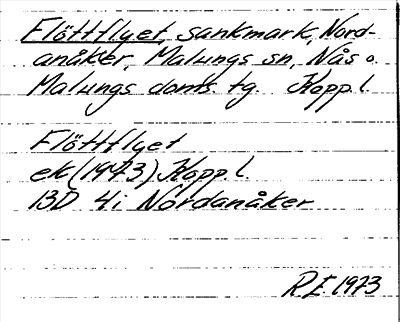 Flöttflyet, sankmark, Nord-
anåker, Malungs sn, Nås o.
Malungs doms. tg. Kopp. l.
Flöttflyet
ek (1973) Kopp l.
13D 4i Nordanåker
R.E. 1973